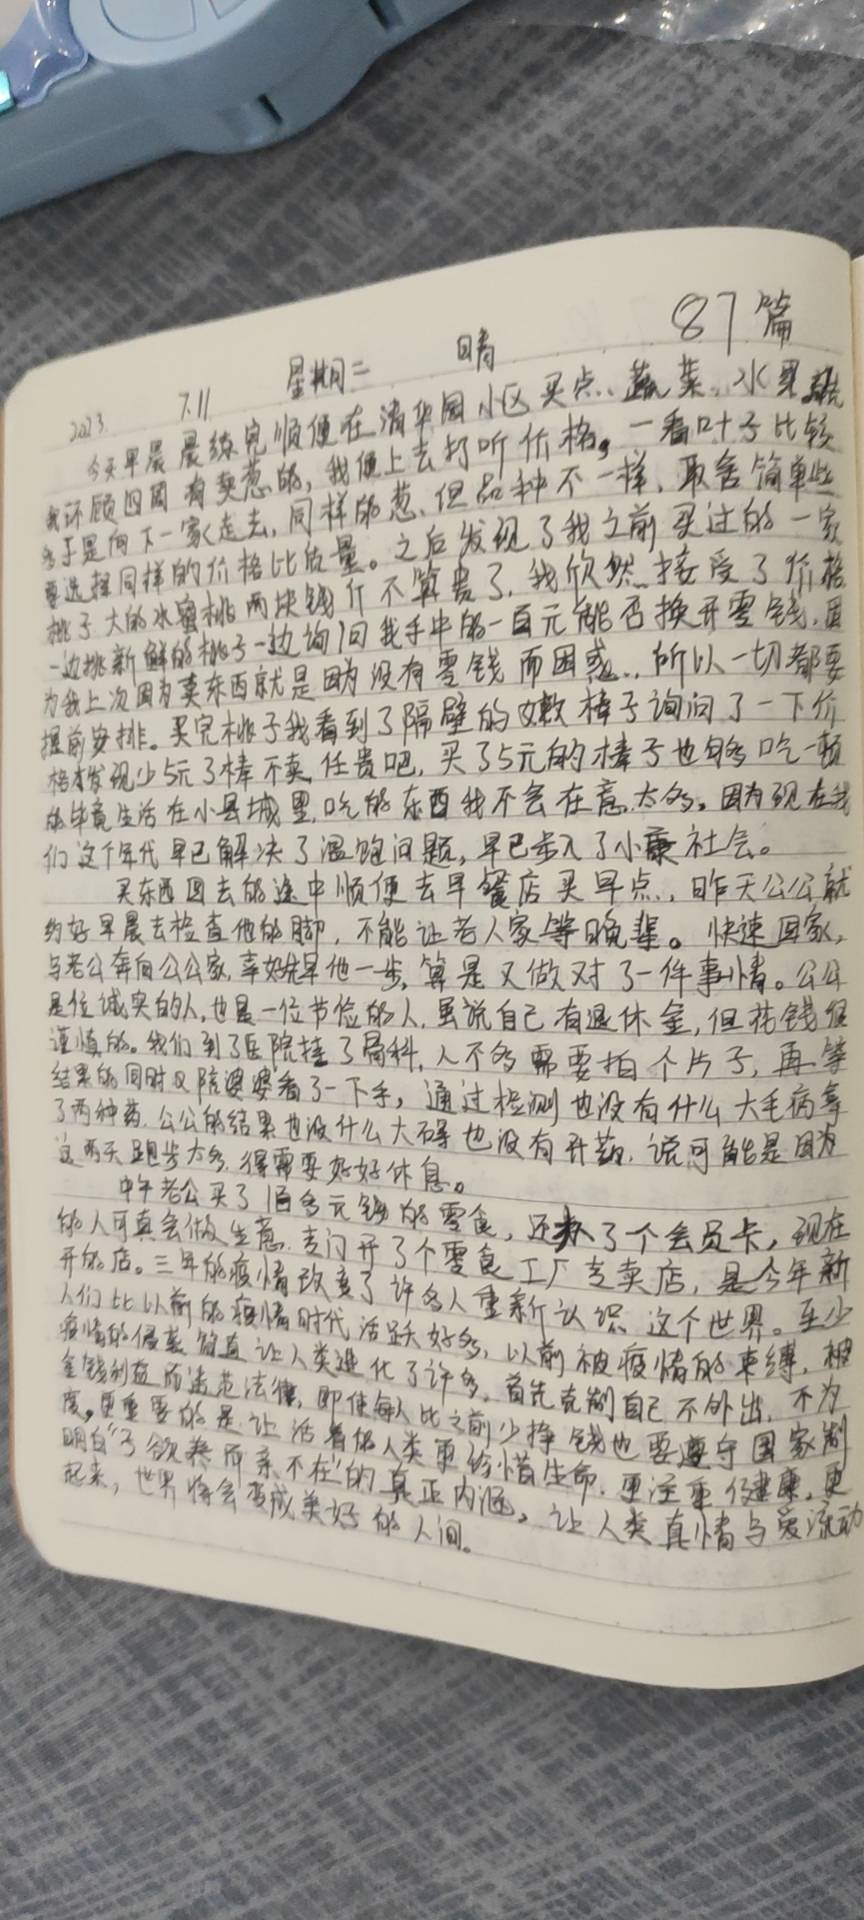 87篇
2023 7.11 星期二 晴
今天早晨晨练完顺便在清华园小区买点、蔬菜、水果
我环顾四周有卖葱的,我便上去打听价格。一看叶子比较
多于是向下一家走去,同样的葱,但品种不一样,取舍简单些
要选择同样的价格比质量。之后发现了我之前买过的一家
桃子大的水蜜桃两块钱斤不算贵了,我欣然接受了价格
一边挑新鲜的桃子一边询问我手中的一百元能否换开零钱,因
为我上次因为卖东西就是因为没有零钱而困惑..所以一切都要
提前安排。买完桃子我看到了隔壁的嫩棒子询问了一下价
格才发现少5元了棒不卖,任贵吧,买了5元的棒子也够吃一顿
的毕竟生活在小县城里,吃的东西我不会在意太多。因为现在我
们这个年代早已解决了温饱问题,早已步入了小康社会。
买东西回去的途中顺便去早餐店买早点,昨天公公就
约好早晨去检查他的脚,不能让老人家等晚辈。快速回家,
与老公奔向公公家,幸好先早他一步,算是又做对了一件事情。公公
是位诚实的人,也是一位节俭的人,虽说自己有退休金,但花钱很
谨慎的。我们到了医院挂了骨科,人不多需要拍个片子,再等
结果的同时又陪婆婆看了一下手,通过检测也没有什么大毛病拿
了两种药,公公的结果也没什么大碍也没有开药,说可能是因为
这两天跑步太多,得需要好好休息。
中午老公买了1百多元钱的零食,还办了个会员卡,现在
的人可真会做生意,专门开了个零食工厂专卖店,是今年新
开的店。三年的疫情改变了许多人重新认识这个世界。至少
人们比以前的疫情时代活跃好多,以前被疫情的束缚,被
疫情的侵袭简直让人类进化了许多。首先克制自己不外出,不为
金钱利益而违范法律,即使每人比之前少挣钱也要遵守国家制
度。更重要的是让活着的人类更珍惜生命,更注重健康,更
明白“子欲养而亲不在”的真正内涵。让人类真情与爱流动
起来,世界将会变成美好的人间。